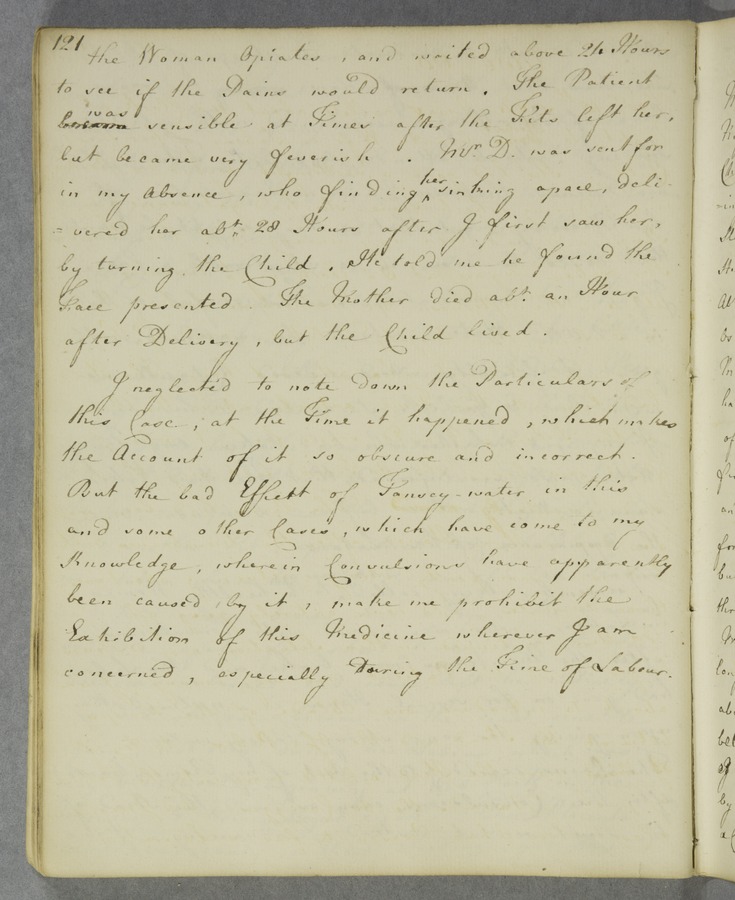 121
the Woman Opiates, and waited above 24 Hours
to see if the Pains would return. The Patient
was
became sensible at Times after the Fits left her,
but became very feverish. Mr. D. was sent for
in my Absence, who finding her sinking apace, deli-
=vered her abt. 28 Hours after I first saw her,
by turning the Child. He told me he found the
Face presented. The Mother died abt. an Hour
after Delivery, but the Child lived.
I neglected to note down the Particulars of
this Case, at the Time it happened, which makes
the Account of it so obscure and incorrect.
But the bad Effect of Tansey-water in this
and some other Cases, which have come to my
Knowledge, wherein Convulsions have apparently
been caused by it, make me prohibit the
Exhibition of this Medicine wherever I am
concerned, especially During the Time of Labour.